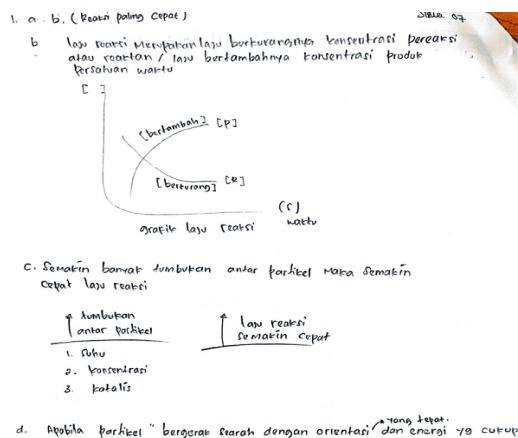 1. a. b. (Reaksi paling cepat)
07
b laju reaksi Merupakan laju berkurangnya konsentrasi pereaksi
atau reaktan / laju bertambahnya konsentrasi produk
Persatuan waktu
[ ]
[bertambah] [P]
[berkurang] [R]
(s)
waktu
grafik laju reaksi
C. Semakin banyak tumbukan antar partikel Maka Semakin
cepat laju reaksi
↑ tumbukan
antar partikel
↑ laju reaksi
semakin cepat
1. Suhu
2. Konsentrasi
3. Katalis
yang tepat.
d. Apabila partikel" bergerak searah dengan orientasi dan energi yg cukup